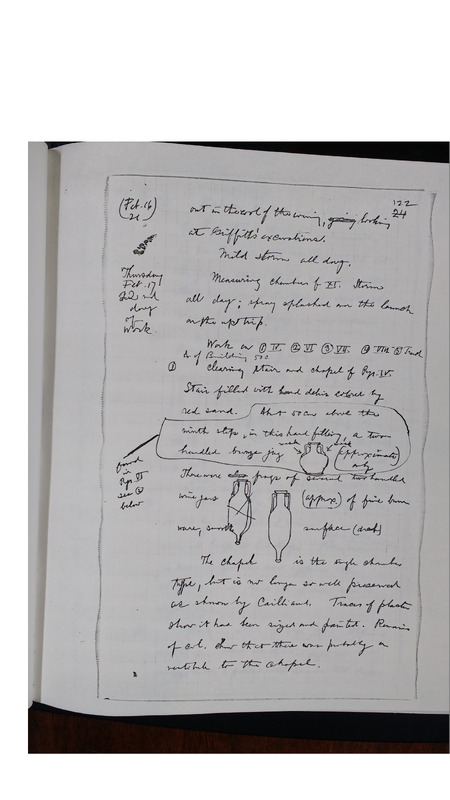 122
24
(Feb. 16
21)
out in the cool of the evening, going looking
at Griffith's excavations.
Mild storm all day.
Thursday
Feb. 17
22nd
day
of
work.
Measuring chambers of VI. Storm
all day; spray splashed over the launch
on the up trip.
Work on ① IV. ② VI ③ VII. ④ VIII ⑤
of Building 500
① clearing stair and chapel of Pyr. IV.
Stair filled with hard debris colored by
red sand. About 50 cm above the
ninth step, in this hard filling, a two
handled bronze jug
(approximate
only)
found
in
Pyr. VI
see ②
below
There were also frags of several two handled
wine jars (approx) of fine brown
ware, smooth surface
The chapel is the single chamber
type, but is no longer so well preserved
as shown by Cailliaud. Traces of plaster
show it has been sized and painted. Remains
of col. show that there was probably a
vestibule to the chapel.